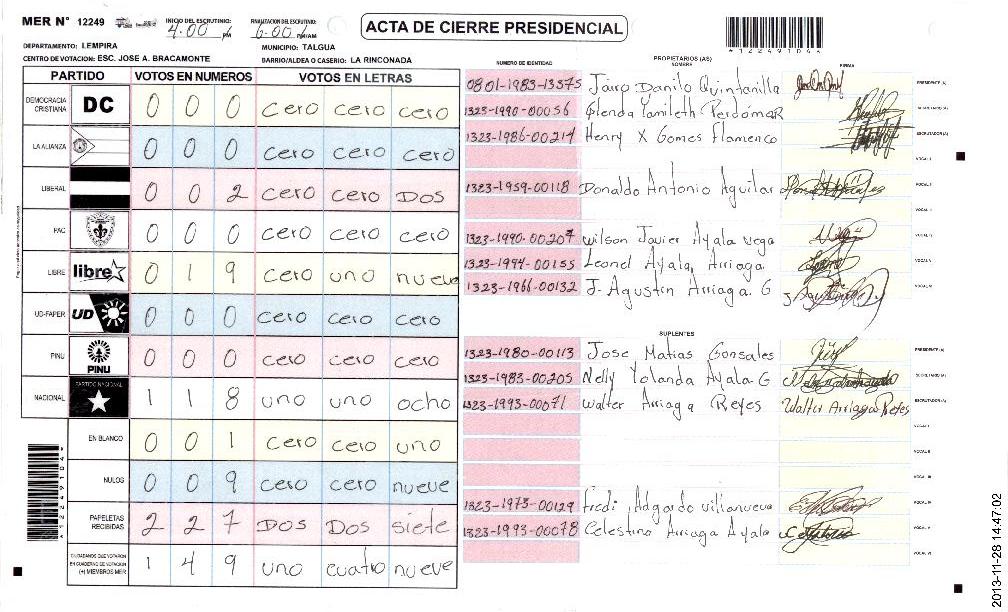 MER N° 12249
INICIO DEL ESCRUTINIO: 4:00 PM
FINALIZACION DEL ESCRUTINIO: 6:00 PM/AM
ACTA DE CIERRE PRESIDENCIAL
1224910A4
DEPARTAMENTO: LEMPIRA
MUNICIPIO: TALGUA
CENTRO DE VOTACION: ESC. JOSE A. BRACAMONTE
BARRIO/ALDEA O CASERIO: LA RINCONADA
PARTIDO VOTOS EN NUMEROS VOTOS EN LETRAS
DEMOCRACIA CRISTIANA DC 0 0 0 cero cero cero
LA ALIANZA 0 0 0 cero cero cero
LIBERAL 0 0 2 cero cero Dos
PAC 0 0 0 cero cero cero
LIBRE libre 0 1 9 cero uno nueve
UD-FAPER UD 0 0 0 cero cero cero
PINU PINU 0 0 0 cero cero cero
NACIONAL PARTIDO NACIONAL 1 1 8 uno uno ocho
EN BLANCO 0 0 1 cero cero uno
NULOS 0 0 9 cero cero nueve
PAPELETAS RECIBIDAS 2 2 7 Dos Dos siete
CIUDADANOS QUE VOTARON EN CUADERNO DE VOTACION (+) MIEMBROS MER 1 4 9 uno cuatro nueve
PROPIETARIOS (AS)
NUMERO DE IDENTIDAD NOMBRE FIRMA
0801-1983-13375 Jairo Danilo Quintanilla PRESIDENTE (A)
1323-1990-00056 Glenda Yamileth Perdomo R SECRETARIO (A)
1323-1986-00214 Henry X Gomes Flamenco ESCRUTADOR (A)
VOCAL I
1323-1959-00118 Donaldo Antonio Aguilar VOCAL II
1323-1990-00207 Wilson Javier Ayala Vega
1323-1994-00155 Leonel Ayala, Arriaga
1323-1966-00132 J. Agustin Arriaga. G
SUPLENTES
1323-1980-00113 Jose, Matias Gonsales PRESIDENTE (A)
1323-1983-00205 Nelly Yolanda Ayala G SECRETARIO (A)
1323-1993-00071 Walter Arriaga Reyes Walter Arriaga Reyes ESCRUTADOR (A)
VOCAL I
VOCAL II
VOCAL III
1323-1973-00129 Fredi Adgardo villanueva VOCAL IV
1323-1993-00078 Celestino Arriaga Ayala VOCAL V
VOCAL VI
2013-11-28 14:47:02